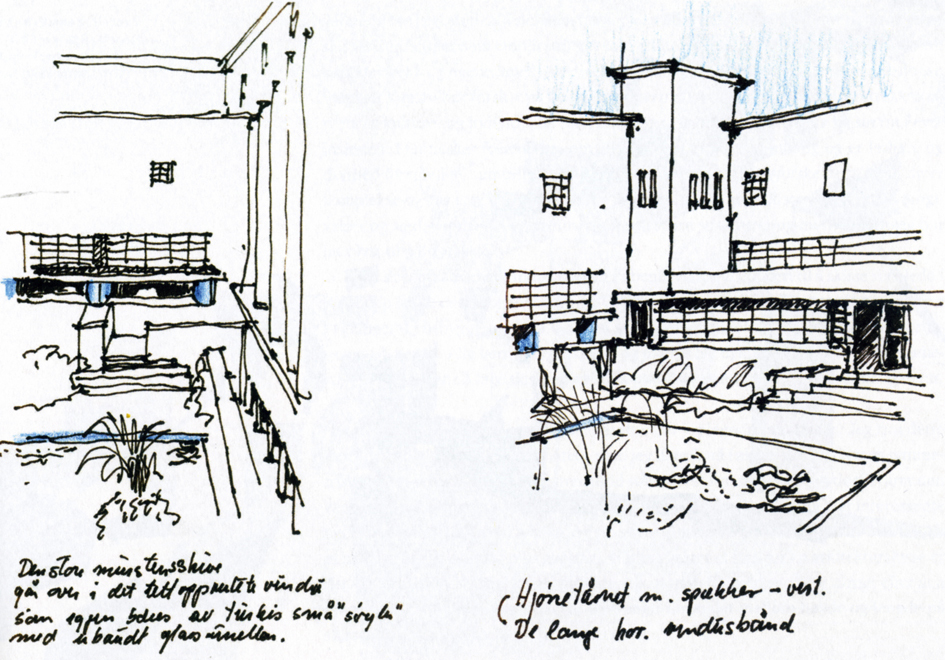 Den store murstensskive
går over i det tett opprutete vindu
som igjen bæres av Turkis små "søyler"
med ubrudt glass imellem.
Hjørnetårnet m. sprekker - vest.
De lange hor. vindusbånd